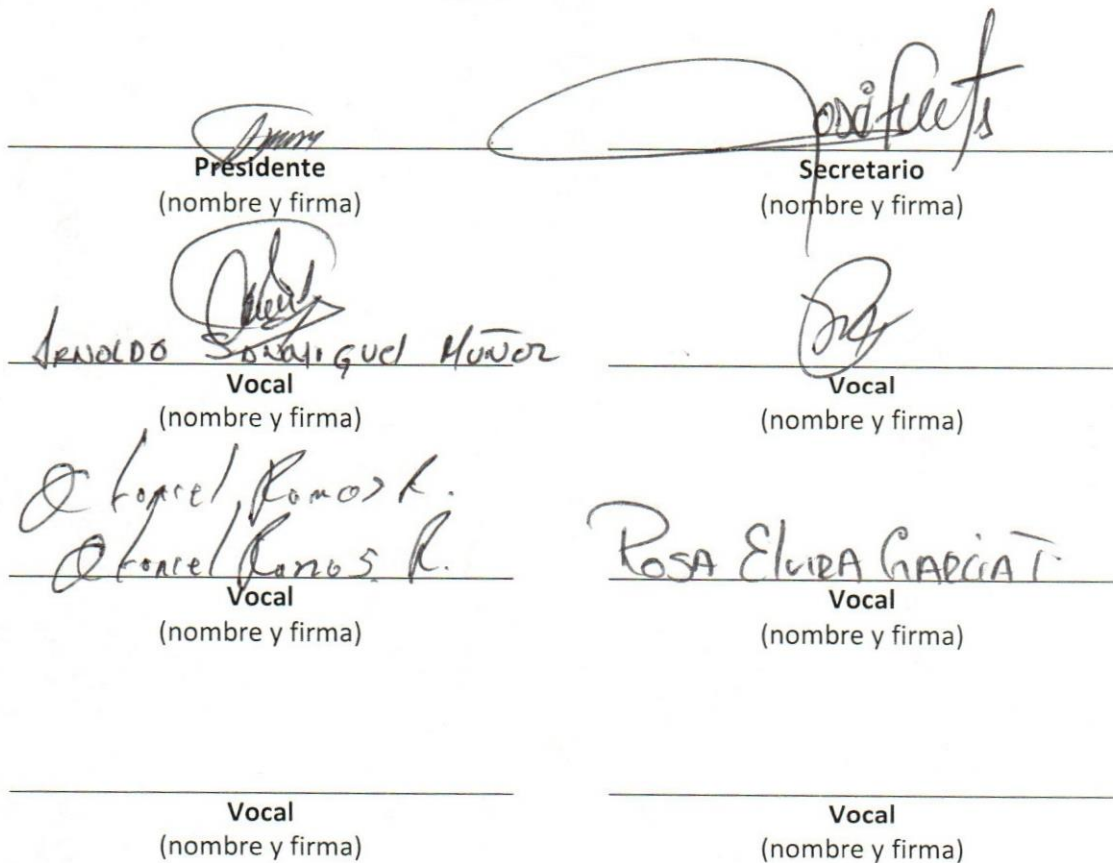 Presidente
(nombre y firma)
Secretario
(nombre y firma)
ARNOLDO SANMIGUEL MUÑOZ
Vocal
(nombre y firma)
Vocal
(nombre y firma)
Ramos R.
Ramos R.
Vocal
(nombre y firma)
ROSA ElVIRA GARCIA T.
Vocal
(nombre y firma)
Vocal
(nombre y firma)
Vocal
(nombre y firma)